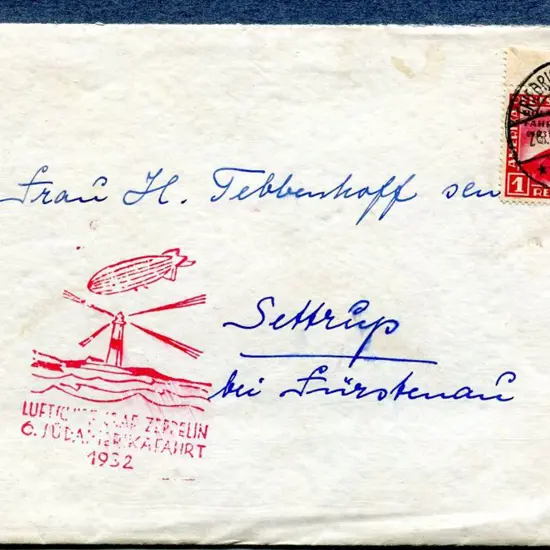 Frau H. Tebbenhoff sen
Settrup
bei Fürstenau
LUFTSCHIFF GRAF ZEPPELIN
6. SÜDAMERIKAFAHRT
1932
FAHRT
1
RE